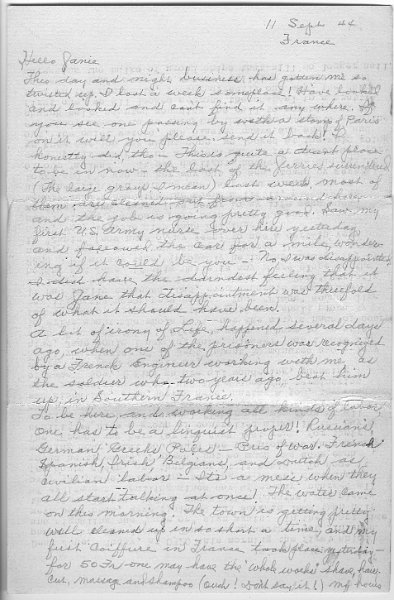 11 Sept 44
France
Hello Janie
This day and night business has gotten me so
twisted up, I lost a week someplace! Have looked
and looked and can't find it any where. If
you see one passing by with a stamp Paris
on it will you please send it back! I
honestly did, tho - This is quite a decent place
to be in now - the last of the Jerries surrendered
(The large group I mean) last week most of
them are cleaned out from around here
and the job is going pretty good. Saw my
first U.S. Army nurse over here yesterday
and followed the car for a mile, wonder-
ing if it could be you - No, I was disappointed,
I just have the darndest feeling that it
was Jane that disappointment was threefold
of what it should have been.
A bit of irony of Life, happened several days
ago, when one of the prisoners was recognized
by a French Engineer working with me as
the soldier who two years ago, beat him
up, in Southern France.
To be here, and working all kinds of labor
one has to be a linguist Russians,
German Greeks Poles - Pris of War. French
Spanish, Irish Belgians, and Dutch as
civilian labor - Its a mess when they
all start talking at once! The water came
on this morning. The town is getting pretty
well cleaned up in so short a time, and my
first Coiffure in France took place yesterday -
for 50 Fr - one may have the "whole works" shave, hair
cut, massage and shampoo (Ouch! Don't say it!) My hours